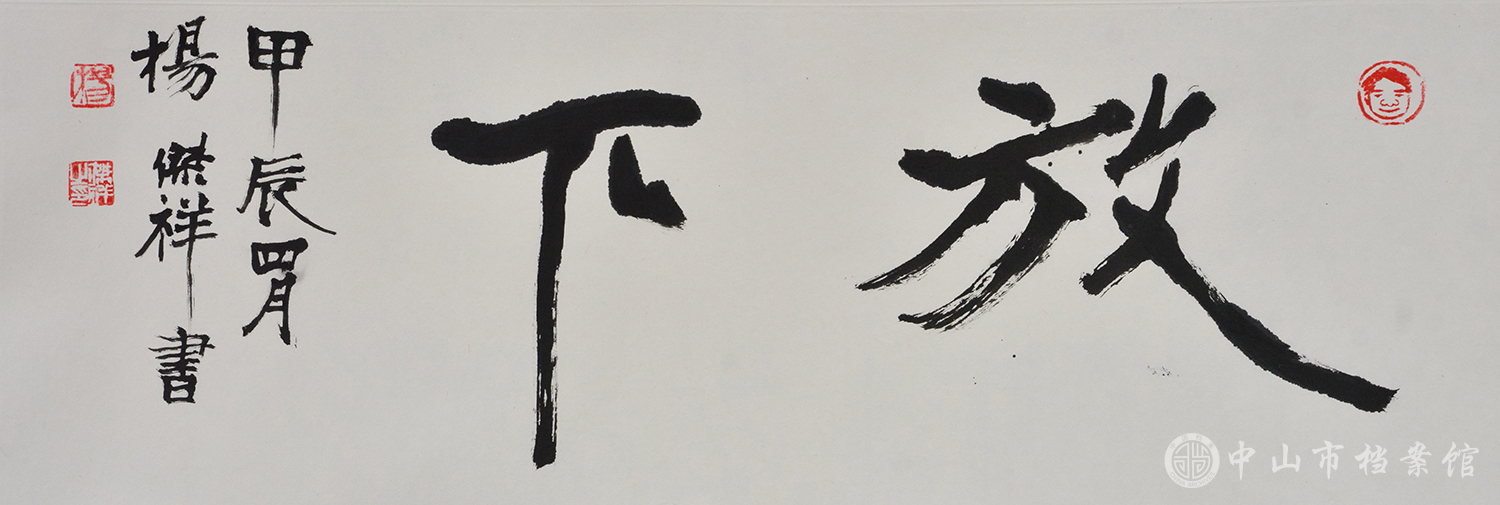 放下
甲辰四月
楊傑祥書
中山市档案馆